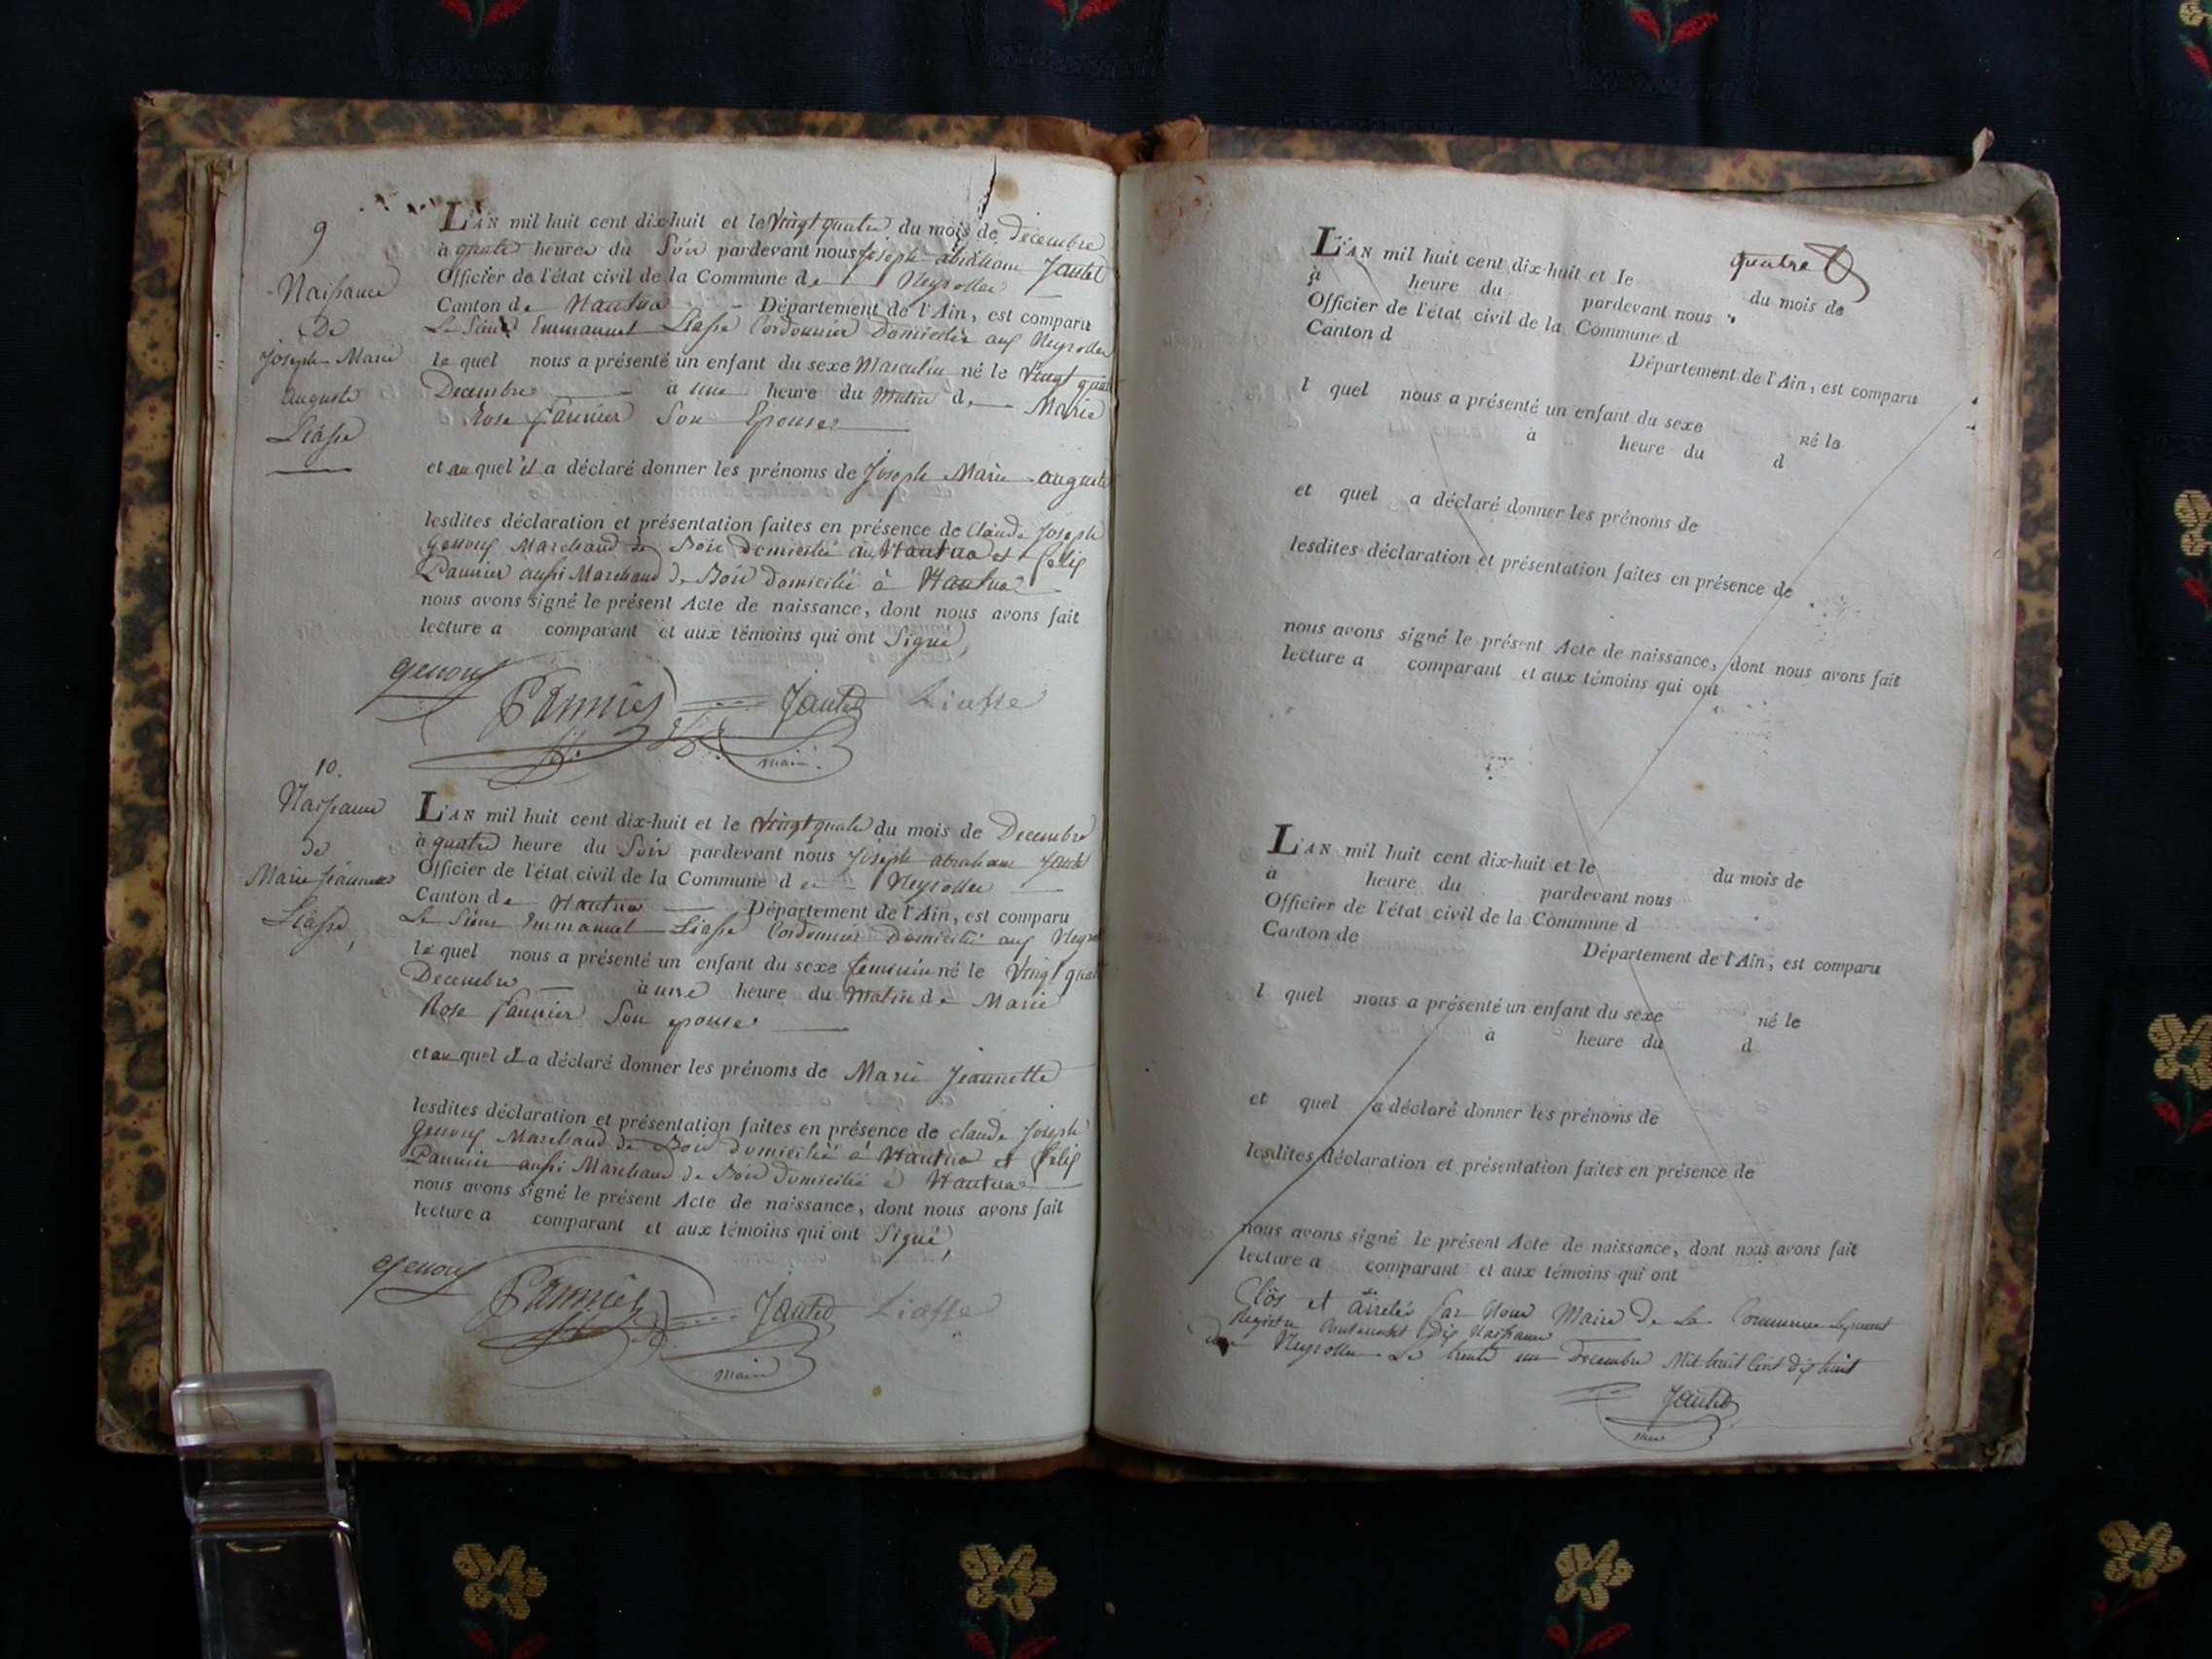 9
Naissance
De
Joseph Marie
auguste
Liasse
L'AN mil huit cent dix-huit et le vingt quatre du mois de Decembre
à quatre heures du Soir pardevant nous Joseph abraham Jantet
Officier de l'état civil de la Commune de Neyrolles
Canton de Nantua Département de l'Ain, est comparu
Le Sieur Emmanuel Liasse Cordonnier Domicilié aux Neyrolles
lequel nous a présenté un enfant du sexe Masculin né le Vingt quat
Decembre à une heure du matin de Marie
Rose Pannier Son Epouse
et au quel il a déclaré donner les prénoms de Joseph Marie auguste
lesdites déclaration et présentation faites en présence de Claude Joseph
Genoux Marchand de Bois Domicilié à Nantua et Felix
Pannier aussi Marchand de Bois domicilié à Nantua
nous avons signé le présent Acte de naissance, dont nous avons fait
lecture a comparant et aux témoins qui ont Signé,
genoux Pannier Jantet Liasse
maire
10.
Naissance
de
Marie Jeannette
Liasse,
L'AN mil huit cent dix-huit et le Vingt quatre du mois de Decembre
à quatre heure du Soir pardevant nous Joseph abraham Jantet
Officier de l'état civil de la Commune de Neyrolles
Canton de Nantua Département de l'Ain, est comparu
Le Sieur Emmanuel Liasse Cordonnier Domicilié aux Neyro
lequel nous a présenté un enfant du sexe feminin né le Vingt quat
Decembre à une heure du Matin de Marie
Rose Pannier Son epouse
et au quel il a déclaré donner les prénoms de Marie Jeannette
lesdites déclaration et présentation faites en présence de claude Joseph
Genoux Marchand de Bois domicilié à Nantua et Felix
Pannier aussi Marchand de Bois Domicilié à Nantua
nous avons signé le présent Acte de naissance, dont nous avons fait
lecture a comparant et aux témoins qui ont Signé,
genoux Pannier Jantet Liasse
maire
quatre
L'AN mil huit cent dix-huit et le du mois de
à heure du pardevant nous
Officier de l'état civil de la Commune d
Canton d Département de l'Ain, est comparu
l quel nous a présenté un enfant du sexe né le
à heure du d
et quel a déclaré donner les prénoms de
lesdites déclaration et présentation faites en présence de
nous avons signé le présent Acte de naissance, dont nous avons fait
lecture a comparant et aux témoins qui ont
L'AN mil huit cent dix-huit et le du mois de
à heure du pardevant nous
Officier de l'état civil de la Commune d
Canton de Département de l'Ain, est comparu
l quel nous a présenté un enfant du sexe né le
à heure du d
et quel a déclaré donner les prénoms de
lesdites déclaration et présentation faites en présence de
nous avons signé le présent Acte de naissance, dont nous avons fait
lecture a comparant et aux témoins qui ont
Clos et arretés Par Nous Maire de La Commune
Registre Contenant dix Naissance
Neyrolles Le trente un Decembre Mil huit Cent dix huit
Jantet